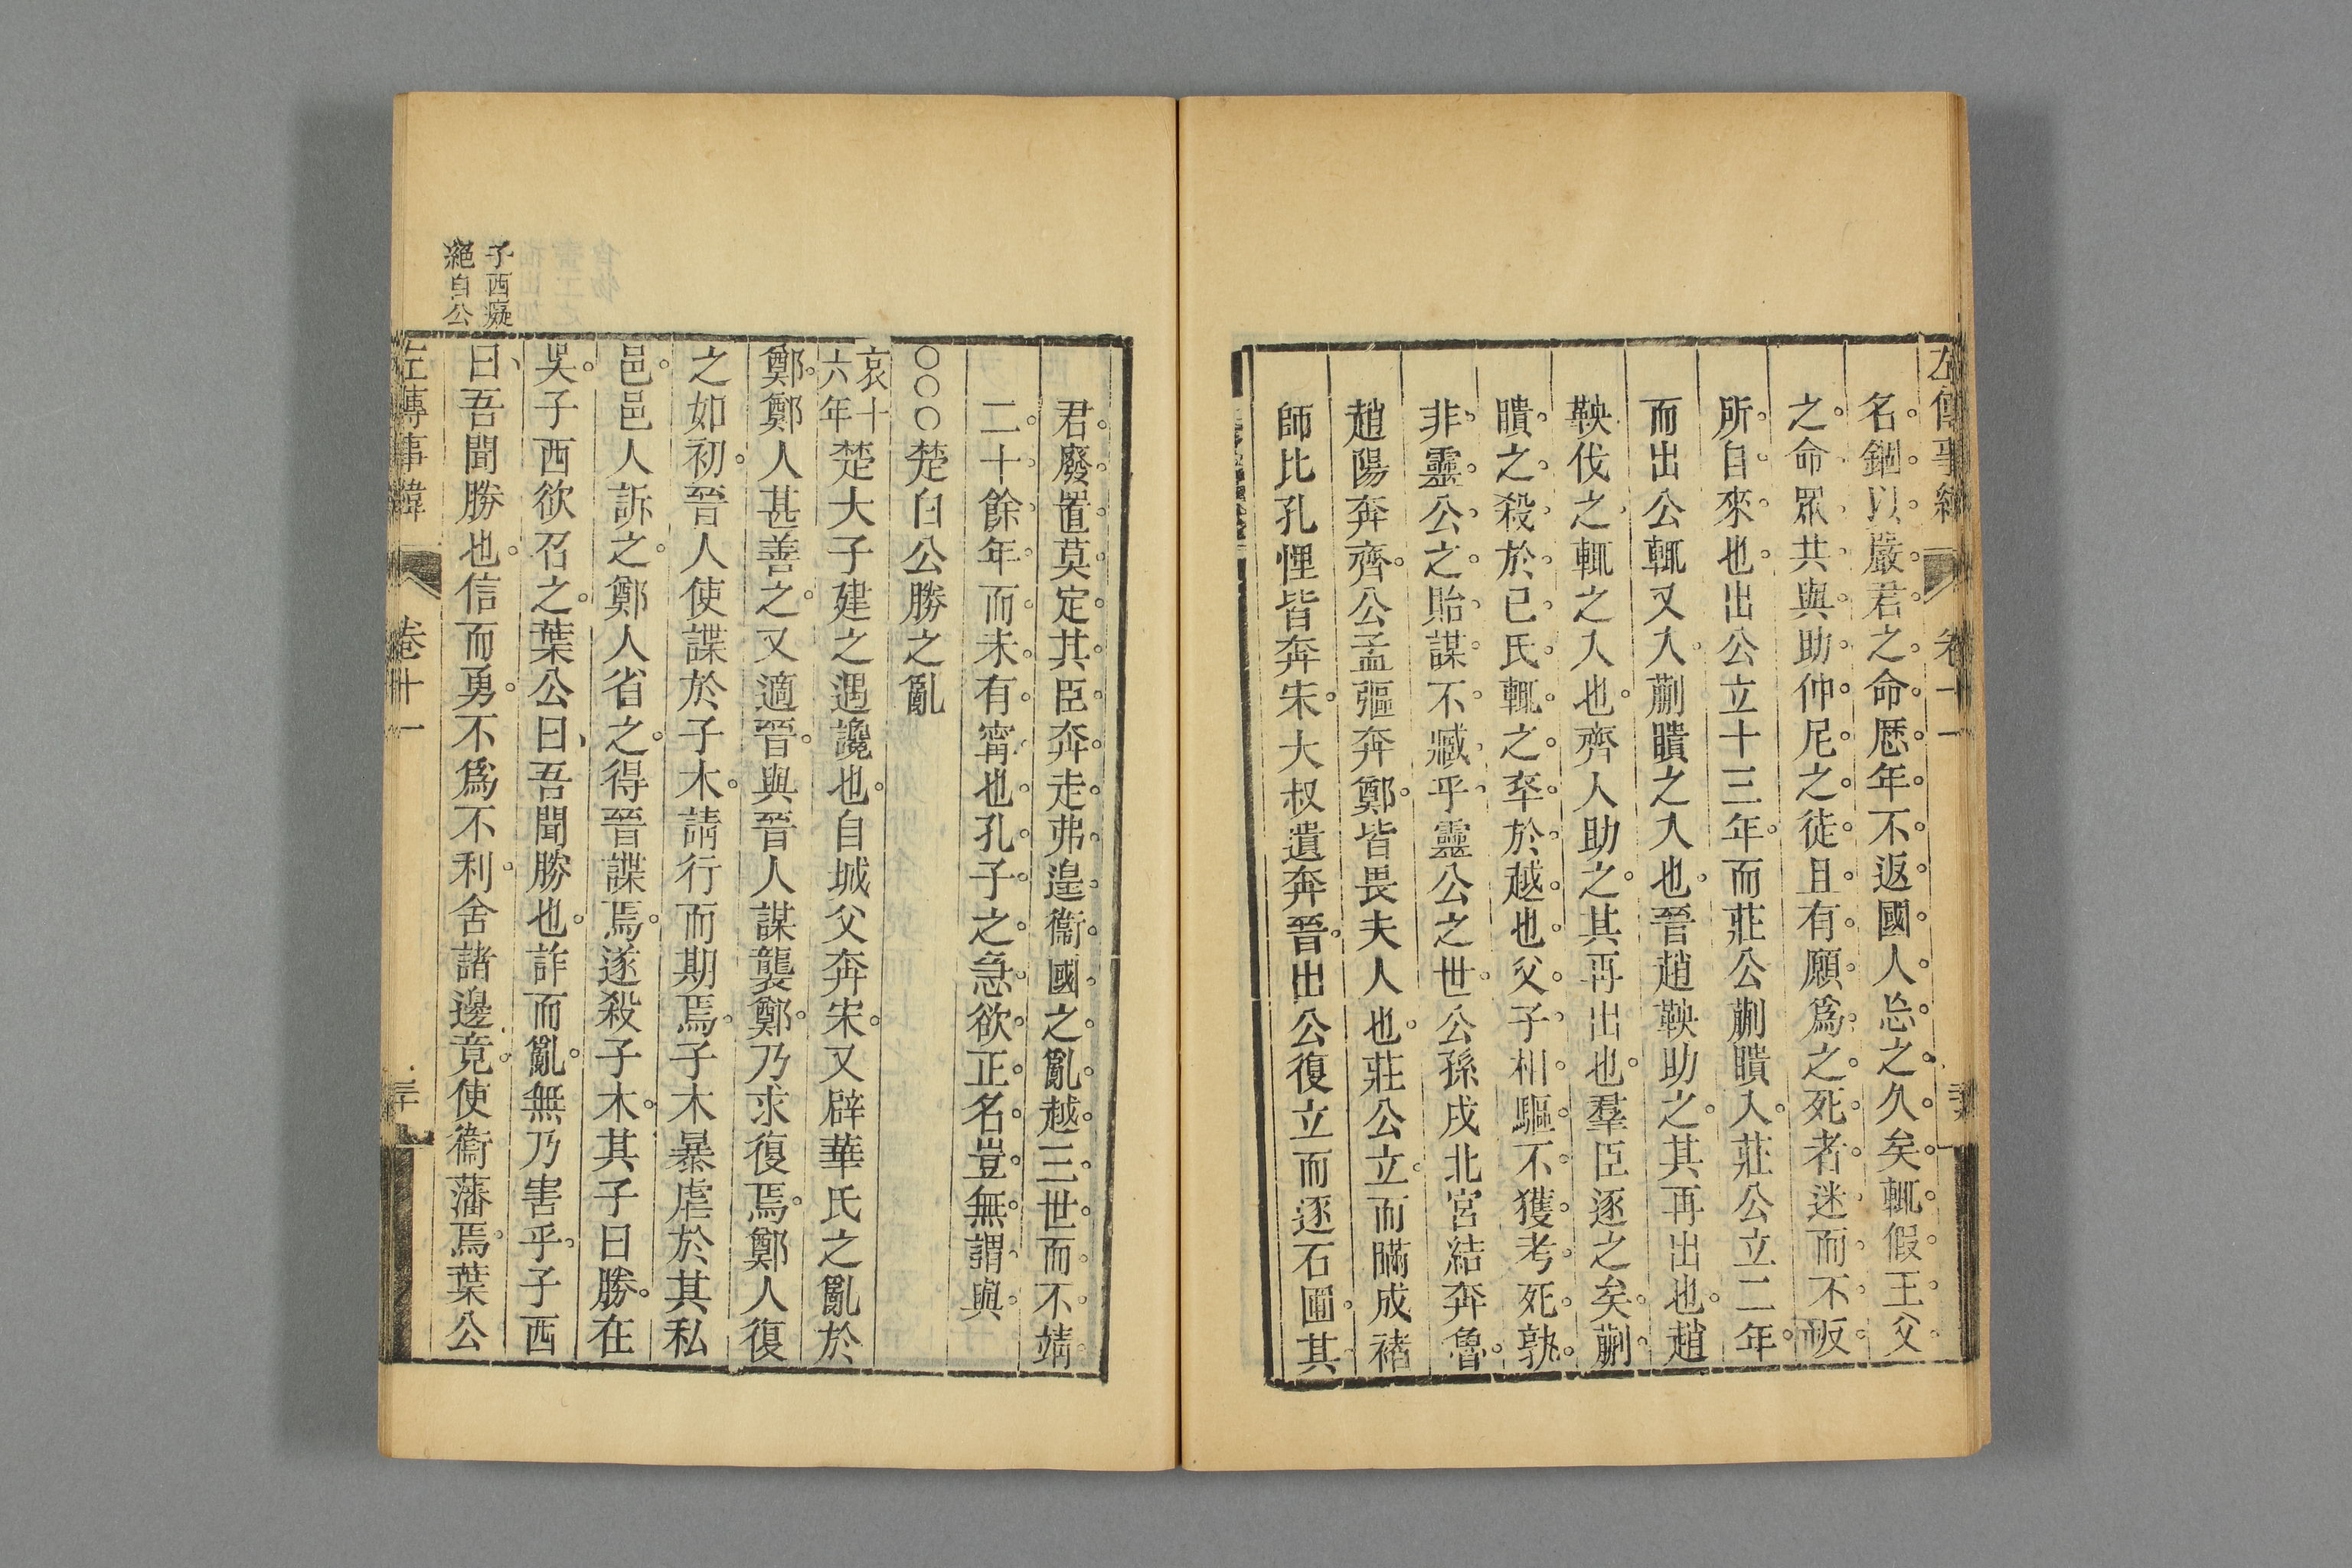 左傳事緯 卷十一
名錮以嚴君之命歷年不返國人忘之久矣輒假王父
之命眾共與助仲尼之徒且有願為之死者迷而不返
所自來也出公立十三年而莊公蒯聵入莊公立二年
而出公輒又入蒯聵之入也晉趙鞅助之其再出也趙
鞅伐之輒之入也齊人助之其再出也羣臣逐之矣蒯
聵之殺於己氏輒之卒於越也父子相驅不獲考死孰
非靈公之貽謀不臧乎靈公之世公孫戍北宮結奔魯
趙陽奔齊公孟彄奔鄭皆畏夫人也莊公立而瞞成褚
師比孔悝皆奔宋大叔遺奔晉出公復立而逐石圃其
君廢置莫定其臣奔走弗遑衞國之亂越三世而不靖
二十餘年而未有甯也孔子之急欲正名豈無謂與
〇〇〇楚白公勝之亂
哀十六年楚大子建之遇讒也自城父奔宋又辟華氏之亂於
鄭鄭人甚善之又適晉與晉人謀襲鄭乃求復焉鄭人復
之如初晉人使諜於子木請行而期焉子木暴虐於其私
邑邑人訴之鄭人省之得晉諜焉遂殺子木其子曰勝在
吳子西欲召之葉公曰吾聞勝也詐而亂無乃害乎子西
曰吾聞勝也信而勇不為不利舍諸邊竟使衞藩焉葉公
子西癡
絕白公
左傳事緯 卷十一